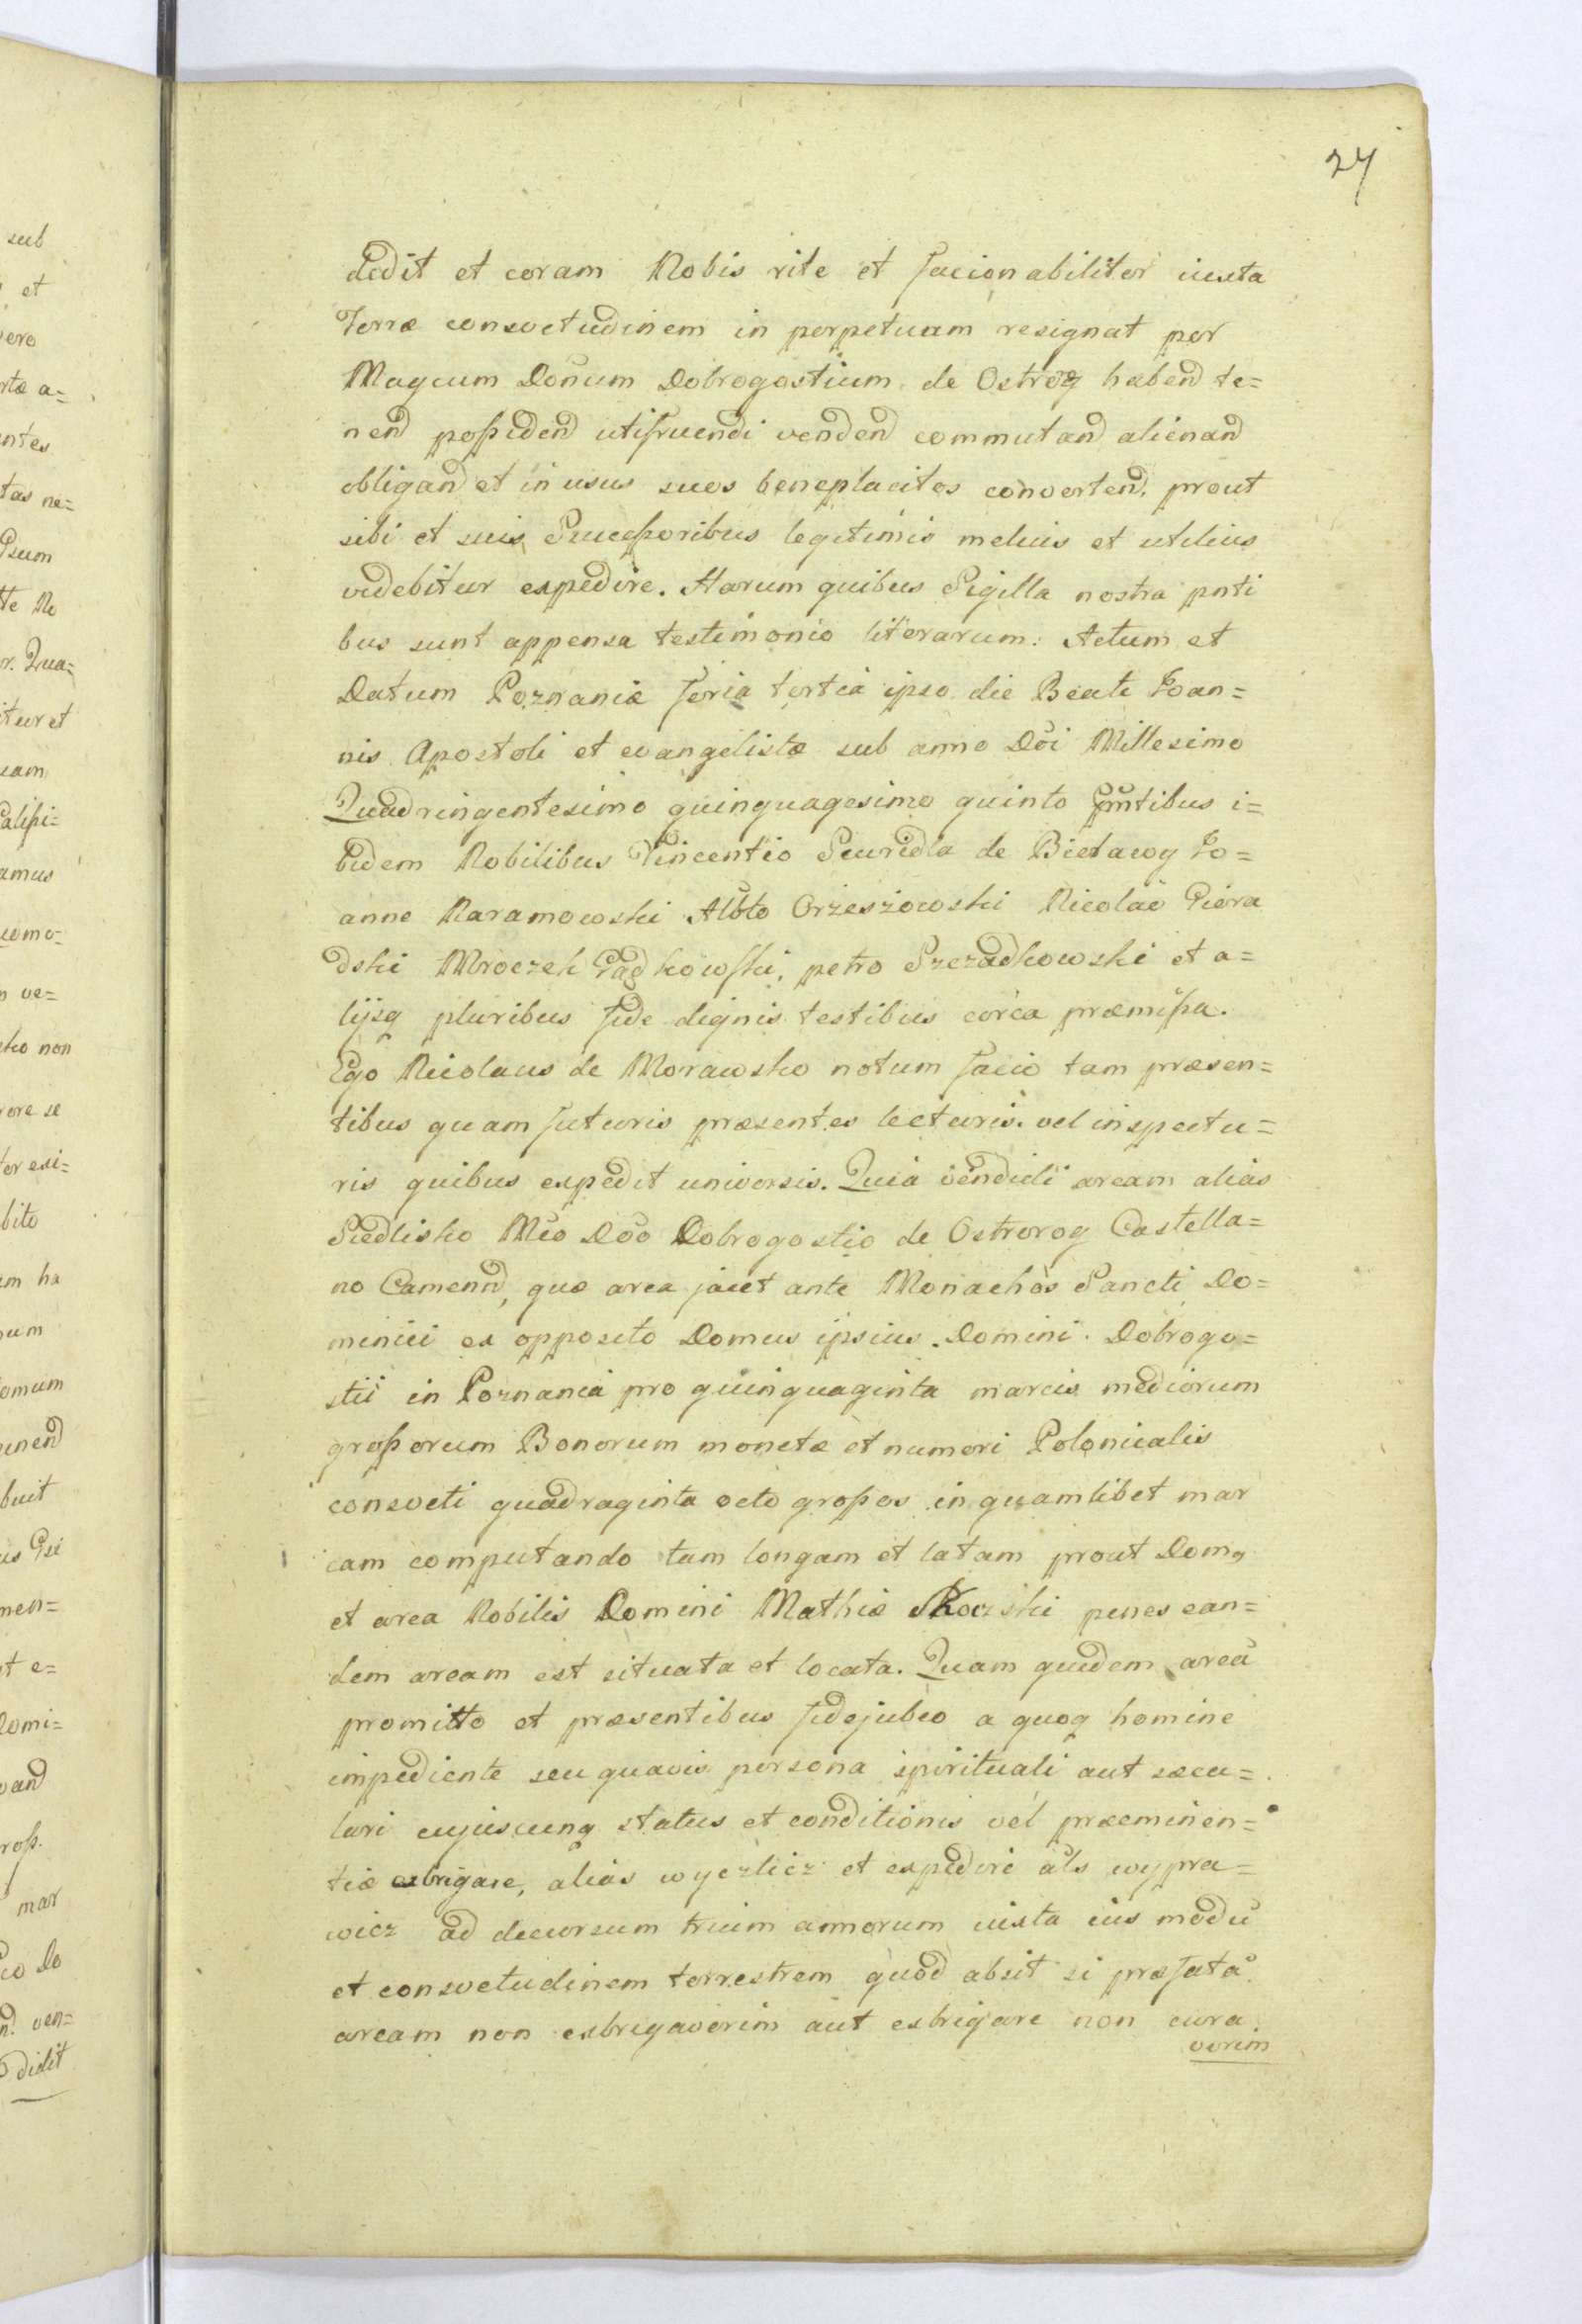 24
dedit et coram Nobis rite et facionabiliter iuxta
Terræ consvetudinem in perpetuam resignat per
Magcum Donum Dobrogostium de Ostrog habend te=
nend possidend utifruendi vendend commutand alienand
obligand et in usus suos beneplacitos convertend, prout
sibi et suis Successoribus legitimis melius et utilius
videbitur expedire. Harum quibus Sigilla nostra pnti
bus sunt appensa testimonio literarum: Actum et
Datum Poznaniæ feria tertia ipso die Beati Joan=
nis Apostoli et evangelistæ sub anno Doi Millesimo
Quadringentesimo quinquagesimo quinto pntibus i=
bidem Nobilibus Vincentio Scuridla de Bielawy Jo=
anne Naramowski Albto Orzeszowski Nicolao Piera
dski Mroczek Padkowski, petro Szczadkowski et a=
lijsq pluribus fide dignis testibus circa præmissa.
Ego Nicolaus de Morawsko notum facio tam præsen=
tibus quam futuris præsentes lecturis vel inspectu=
ris quibus expedit universis. Quia vendidi aream alias
Siedlisko Meo Doo Dobrogostio de Ostrorog Castella=
no Camennd, quæ area jacet ante Monachos Sancti Do=
minici ex opposito Domus ipsius Domini Dobrogo=
stii in Poznania pro quinquaginta marcis mediorum
grossorum Bonorum monetæ et numeri Polonicalis
consveti quadraginta octo grossos in quamlibet mar
cam computando tam longam et latam prout Dom,
et area Nobilis Domini Mathiæ penes ean=
dem aream est situata et locata. Quam quidem areā
promitto et præsentibus fidejubeo a quoq homine
impediente seu quavis persona spirituali aut sæcu=
lari cujuscunq status et conditionis vel præeminen=
tiæ exbrigare, alias wyczlicz et expedire als wypra=
wicz ad decursum trium annorum iuxta ius modū
et consvetudinem terrestrem quod absit si præfatā
aream non exbrigaverim aut exbrigare non cura
verim
sub
et
vero
rtæ a=
ntes
tas ne=
te No
r. Qua=
itur et
amus
ve=
sko non
rore se
bito
um
omum
nend
buit
men=
t e=
Domi=
vand
ross.
mar
co Do
ven=
didit